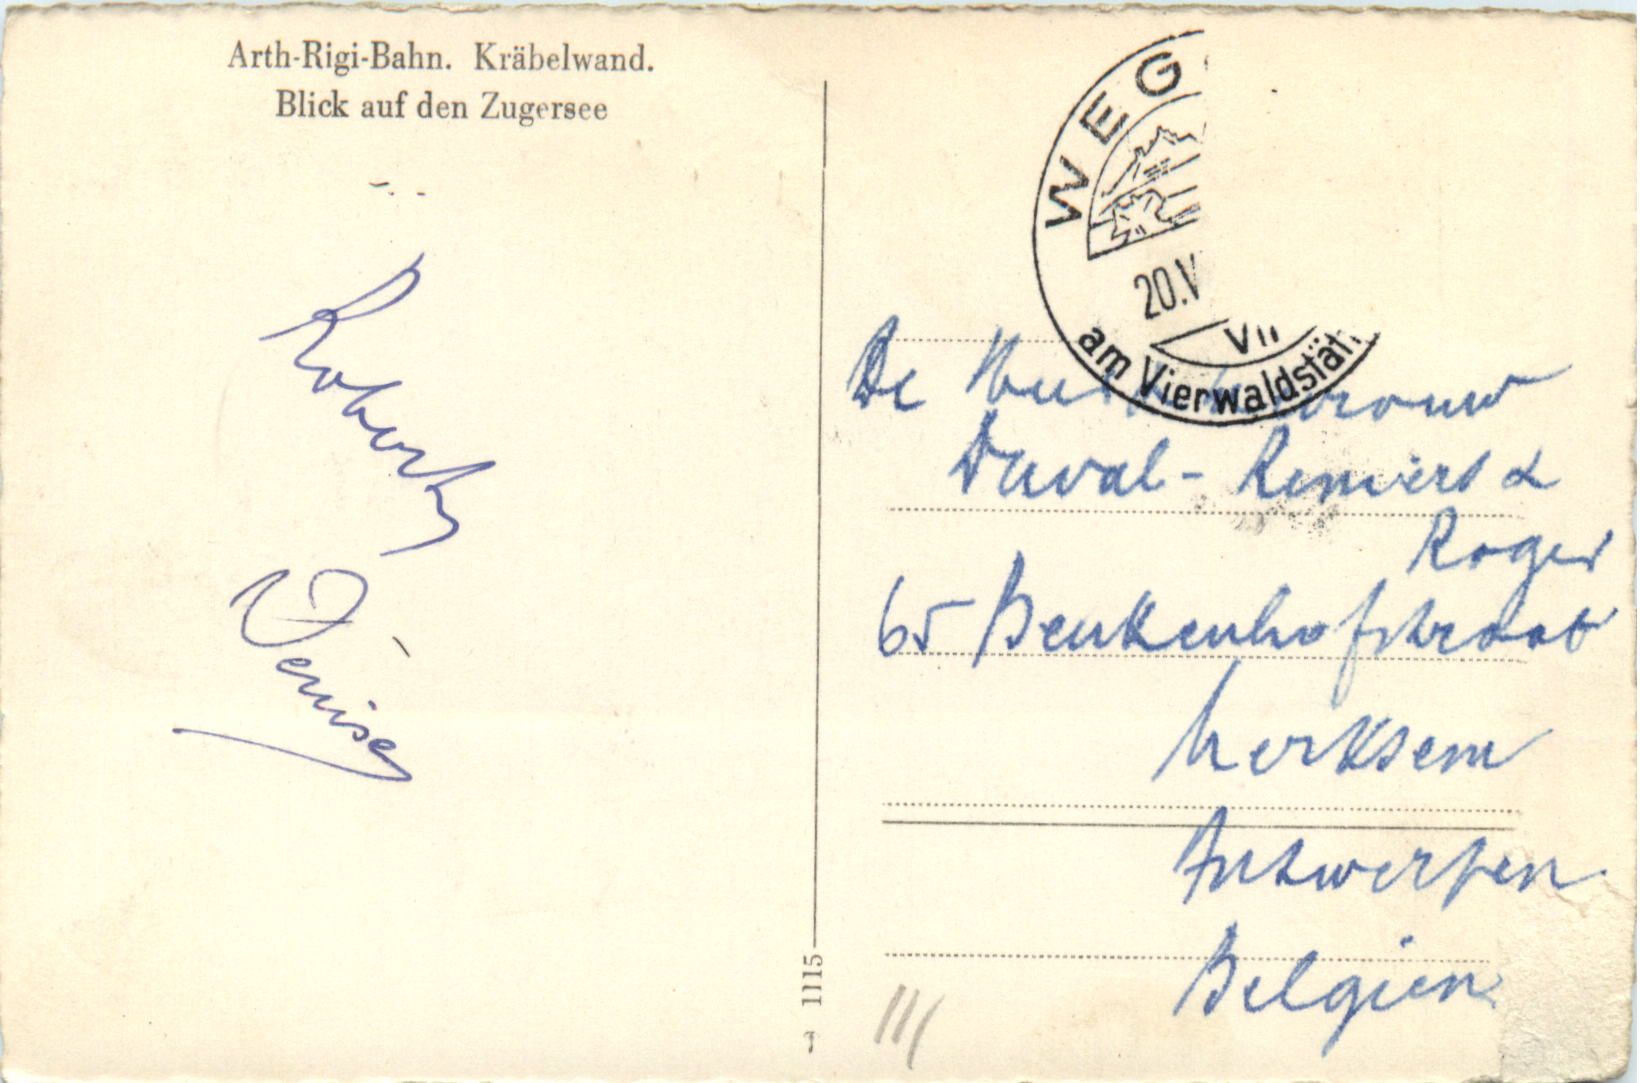 Arth-Rigi-Bahn. Kräbelwand.
Blick auf den Zugersee
Denise
1115
WEG
20.V
VII
am Vierwaldstät
De
Duval - &
Roger
65 Beukenhofstraat
Merksem
Antwerpen
Belgien